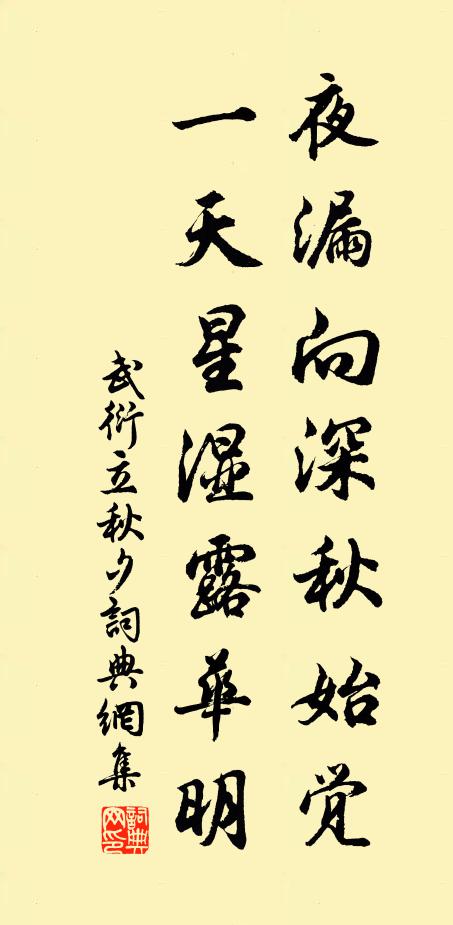 夜漏向深秋始觉
一天星湿露华明
武衍立秋夕詞典網集
詞典网印